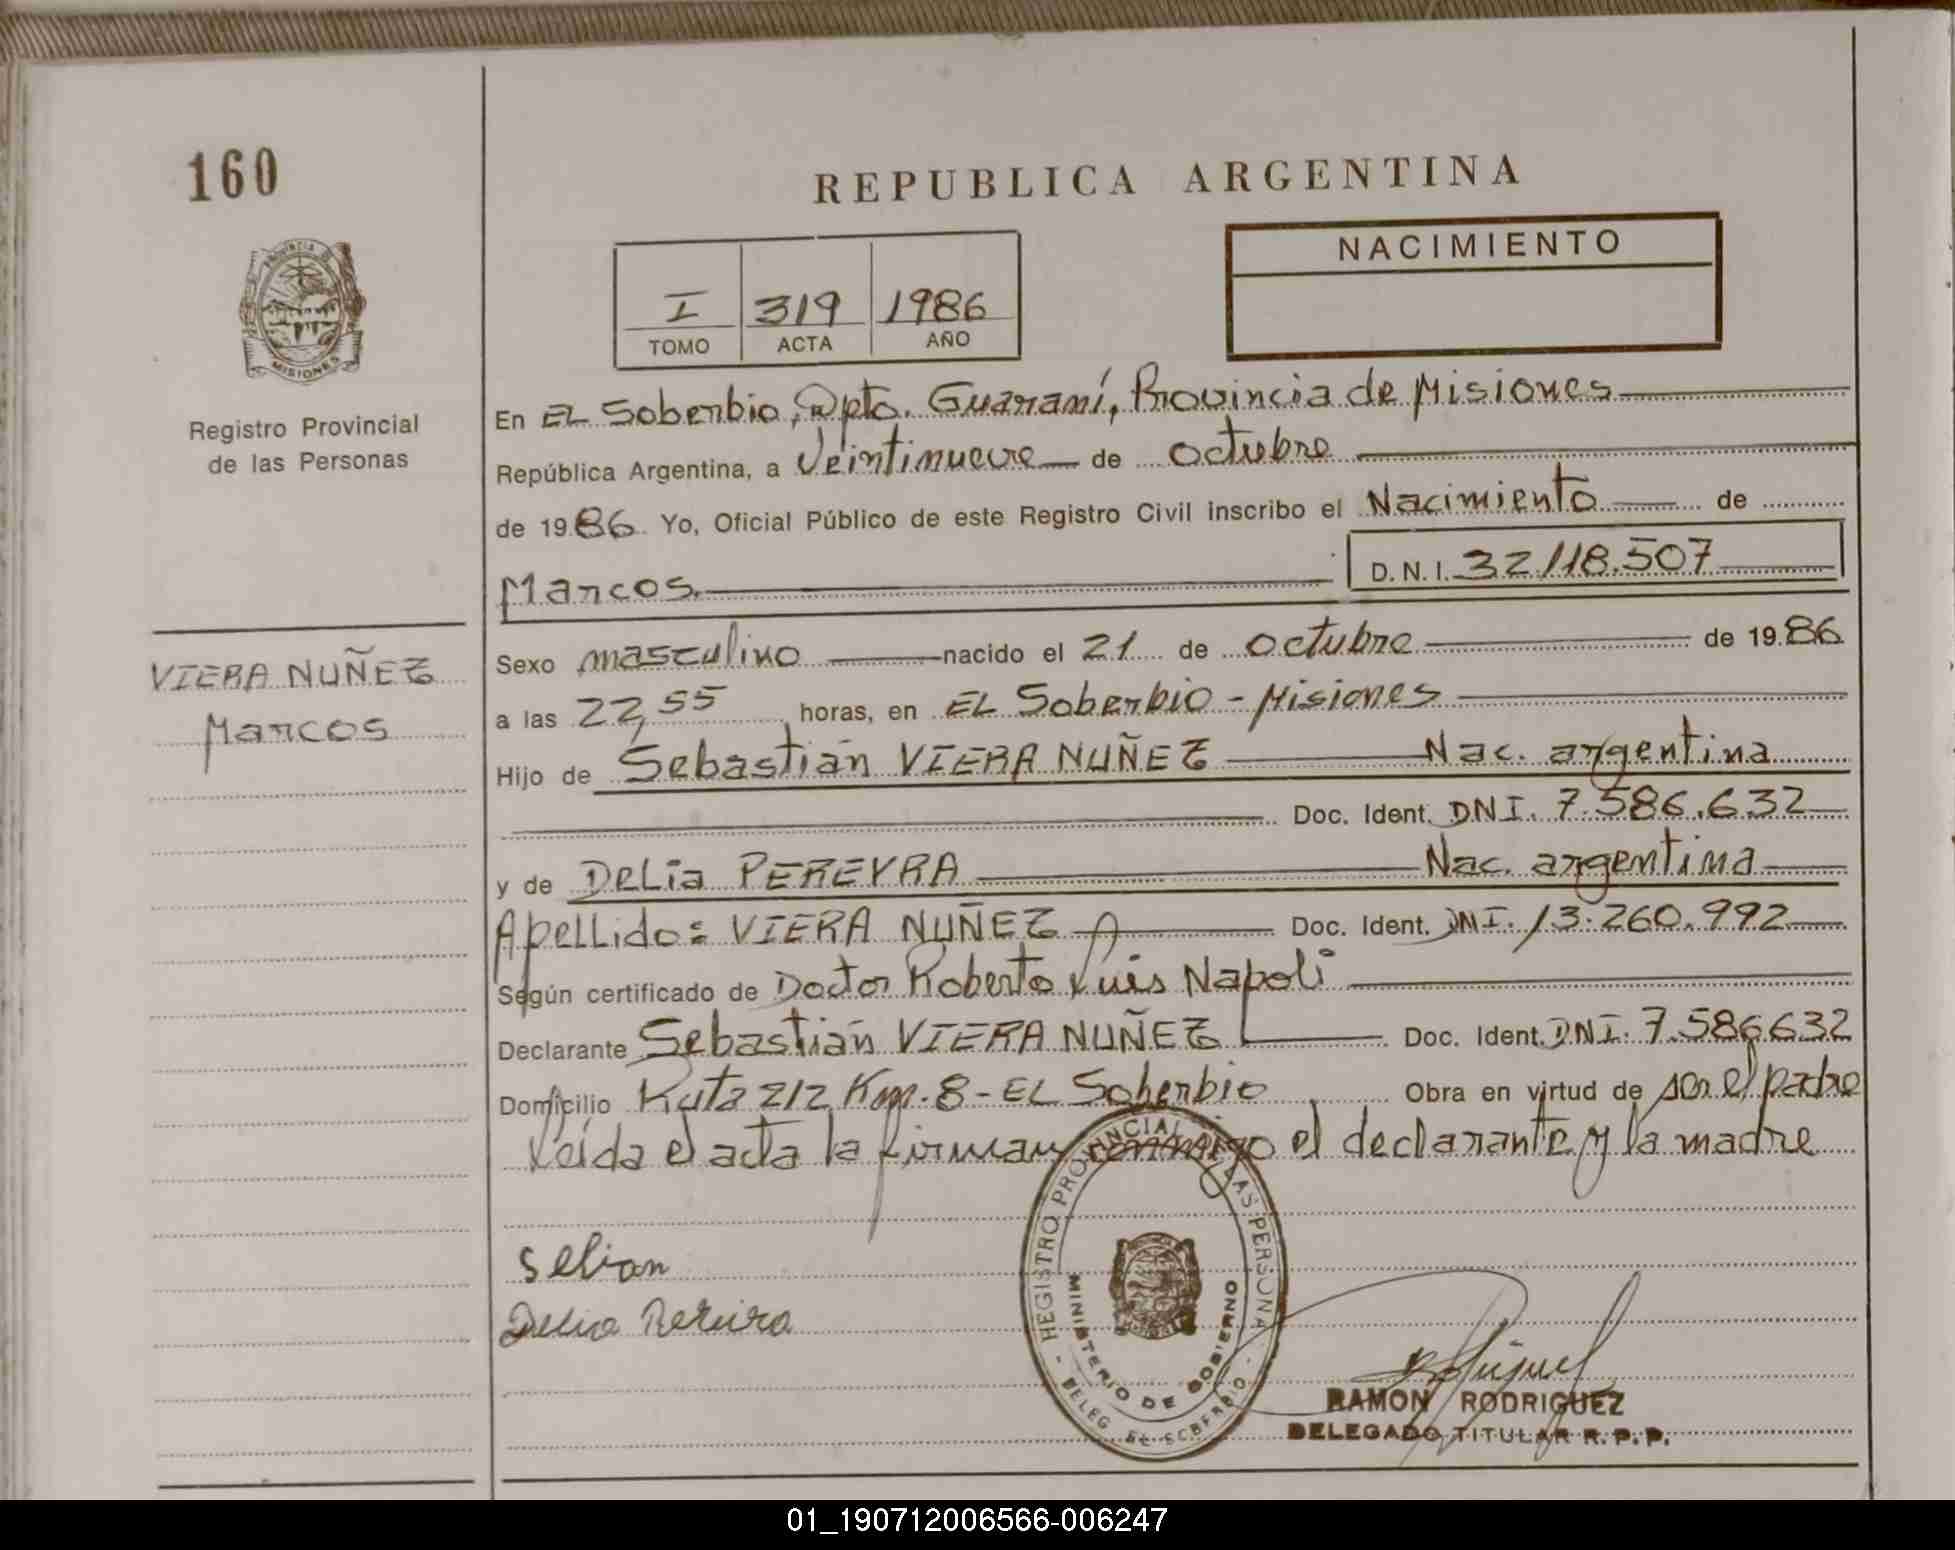 160
REPUBLICA ARGENTINA
NACIMIENTO
I 319 1986
TOMO ACTA AÑO
PROVINCIA DE
MISIONES
Registro Provincial
de las Personas
VIERA NUÑEZ
Marcos
En EL Soberbio, Dpto. Guaraní, Provincia de Misiones
República Argentina, a Veintinueve de octubre
de 1986 Yo, Oficial Público de este Registro Civil inscribo el Nacimiento de
Marcos. D.N.I. 32.118.507
Sexo masculino nacido el 21 de octubre de 1986
a las 22,55 horas, en EL Soberbio - Misiones
Hijo de Sebastián VIERA NUÑEZ Nac. argentina
Doc. Ident. DNI. 7.586.632
y de Delia PEREYRA Nac. argentina
Apellido: VIERA NUÑEZ Doc. Ident. DNI. 13.260.992
Según certificado de Doctor Roberto Luis Napoli
Declarante Sebastián VIERA NUÑEZ Doc. Ident. DNI. 7.586632
Domicilio Ruta 212 Km. 8 - EL Soberbio Obra en virtud de ser el padre
Leída el acta la firman conmigo el declarante y la madre
REGISTRO PROVINCIAL DE LAS PERSONAS
MINISTERIO DE GOBIERNO
DELEG. EL SOBERBIO
Sebian
Delia Pereira
RAMON RODRIGUEZ
DELEGADO TITULAR R.P.P.
01_190712006566-006247